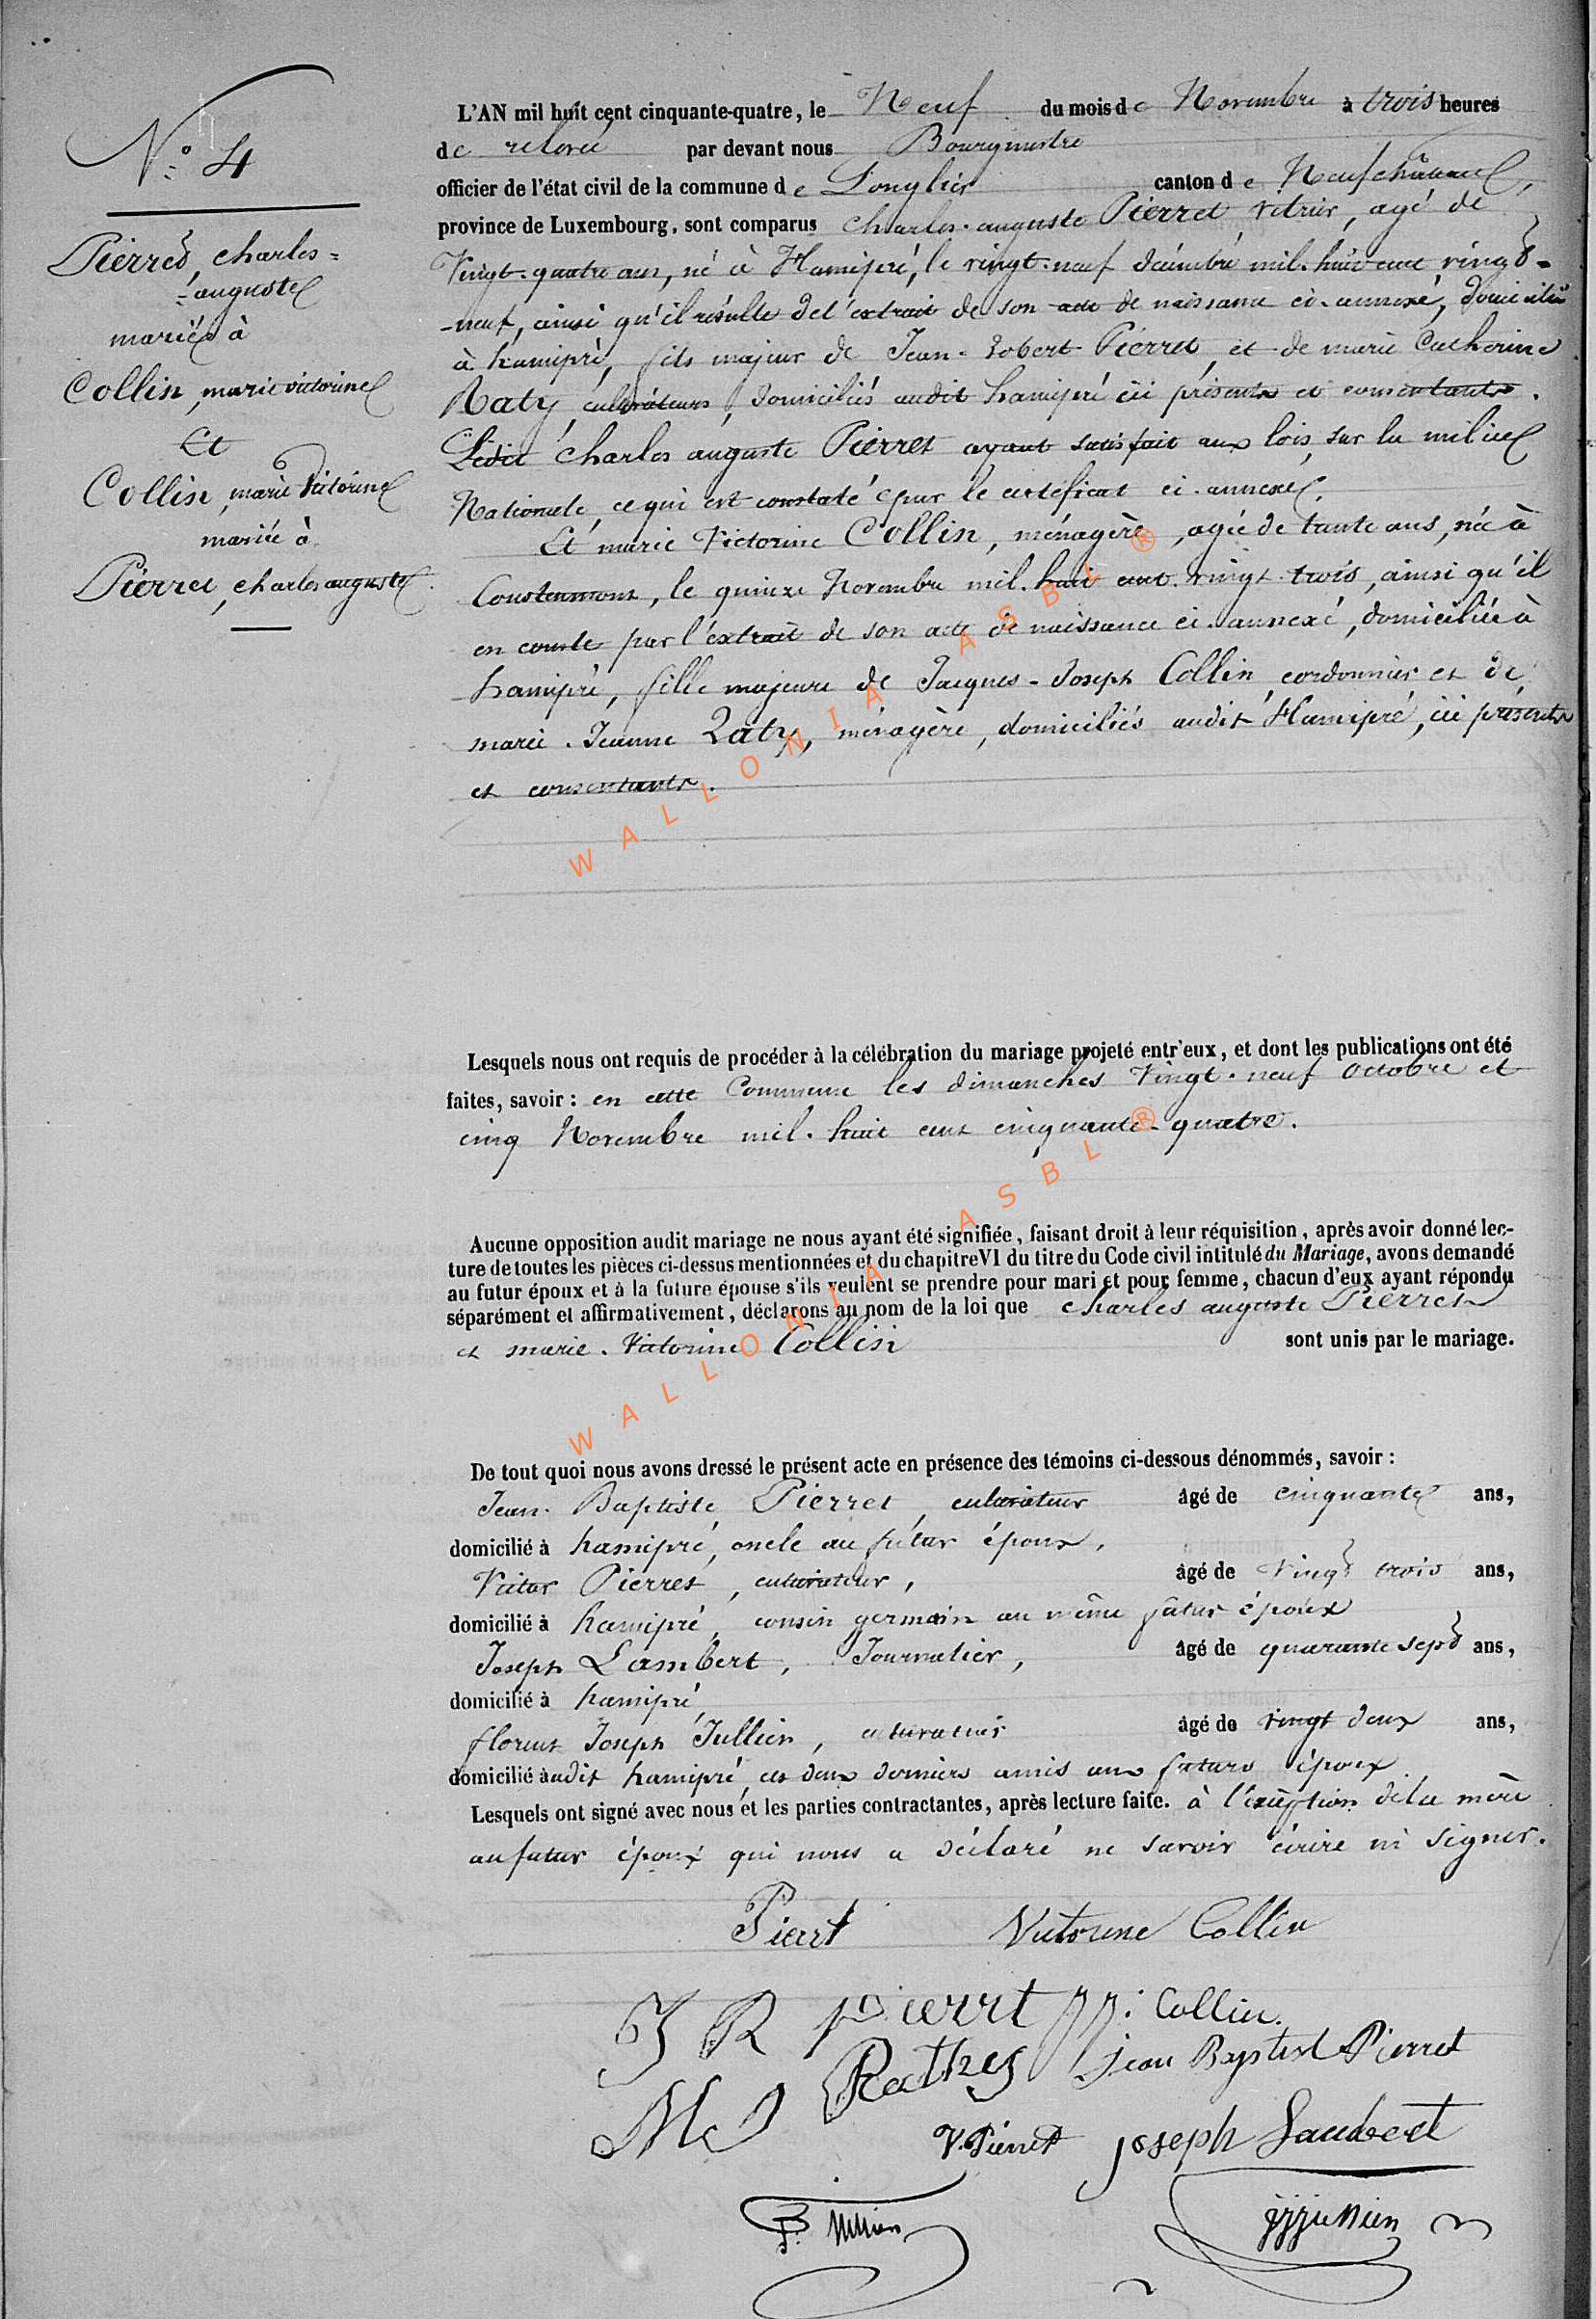 N.° 4
Pierret, charles=
=auguste
marié à
Collin, marie victorine
Et
Collin, marie Victorine
mariée à
Pierret, charles auguste
L'AN mil huit cent cinquante-quatre, le Neuf du mois de Novembre à trois heures
de relevée par devant nous Bourgmestre
officier de l'état civil de la commune de Longlier canton de Neufchâteau,
province de Luxembourg, sont comparus Charles-auguste Pierret, vitrier, agé de
Vingt-quatre ans, né à Hamipré, le vingt-neuf décembre mil-huit cent vingt-
-neuf, ainsi qu'il résulte de l'extrait de son acte de naissance ci-annexé, domicilié
à hamipré, fils majeur de Jean-Robert Pierret et de marie Catherine
Raty, cultivateurs, domiciliés audit hamipré ici présents et consentants.
Ledit Charles auguste Pierret ayant satisfait aux lois sur la milice
Nationale, ce qui est constaté par le certificat ci-annexé.
Et marie Victorine Collin, ménagère, agée de trente ans, née à
Coustumont, le quinze Novembre mil-huit cent-vingt-trois, ainsi qu'il
en conste par l'extrait de son acte de naissance ci-annexé, domiciliée à
hamipré, fille majeure de Jacques-Joseph Collin, cordonnier et de
marie-Jeanne Raty, ménagère, domiciliés audit Hamipré, ici présents
et consentants.
Lesquels nous ont requis de procéder à la célébration du mariage projeté entr'eux, et dont les publications ont été
faites, savoir : en cette Commune les dimanches Vingt-neuf Octobre et
cinq Novembre mil-huit cent cinquante-quatre.
Aucune opposition audit mariage ne nous ayant été signifiée, faisant droit à leur réquisition, après avoir donné lec-
ture de toutes les pièces ci-dessus mentionnées et du chapitre VI du titre du Code civil intitulé du Mariage, avons demandé
au futur époux et à la future épouse s'ils veulent se prendre pour mari et pour femme, chacun d'eux ayant répondu
séparément et affirmativement, déclarons au nom de la loi que charles auguste Pierret
et marie-Victorine Collin sont unis par le mariage.
De tout quoi nous avons dressé le présent acte en présence des témoins ci-dessous dénommés, savoir :
Jean-Baptiste Pierret, cultivateur âgé de cinquante ans,
domicilié à hamipré, oncle au futur époux,
Victor Pierret, cultivateur, âgé de Vingt trois ans,
domicilié à hamipré, cousin germain au même futur époux
Joseph Lambert, Journalier, âgé de quarante sept ans,
domicilié à hamipré,
florent Joseph Jullien, cultivateur âgé de vingt deux ans,
domicilié audit hamipré, ces deux derniers amis aux futurs époux.
Lesquels ont signé avec nous et les parties contractantes, après lecture faite. à l'exception de la mère
au futur époux qui nous a déclaré ne savoir écrire ni signer.
Pierrt Victorine Collin
J R pierrt JJ. Collin.
M J Rathy Jean Baptist Pierret
V. Pierret joseph Lambert
F. Jullien jjjullien
WALLONIA ASBL ®
WALLONIA ASBL ®